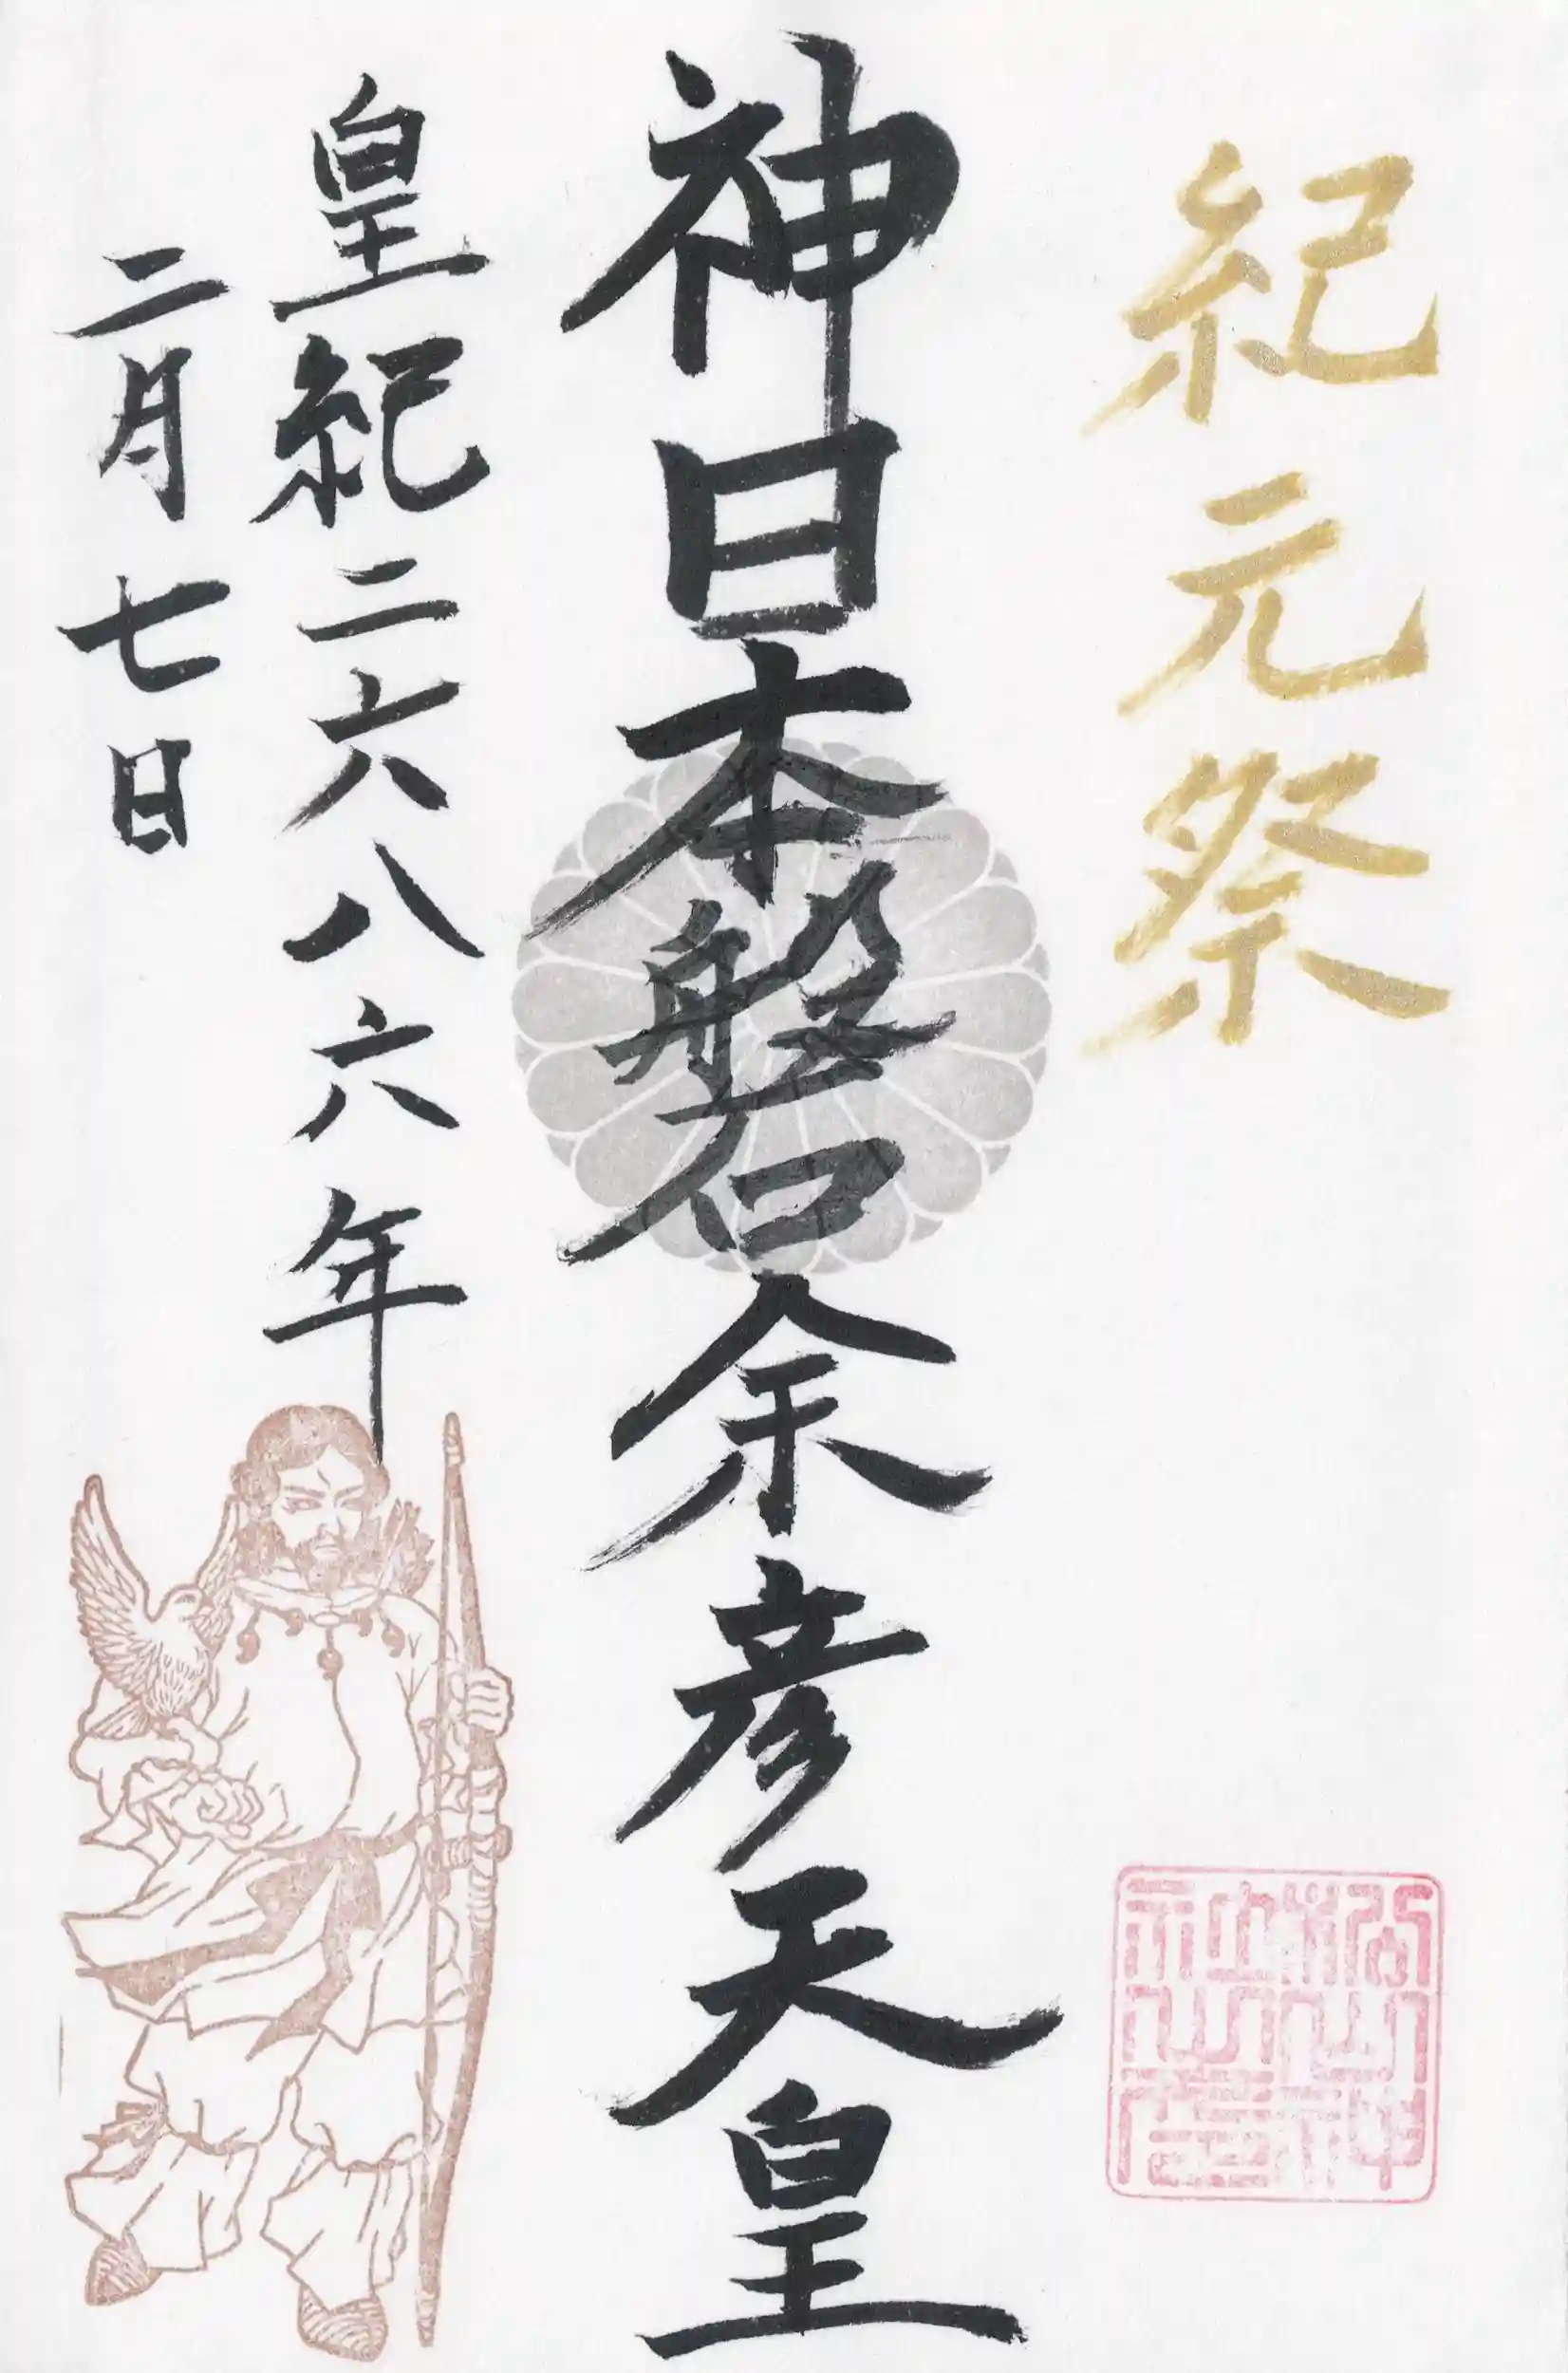 紀元祭
神日本磐余彦天皇
皇紀二六八六年
二月七日